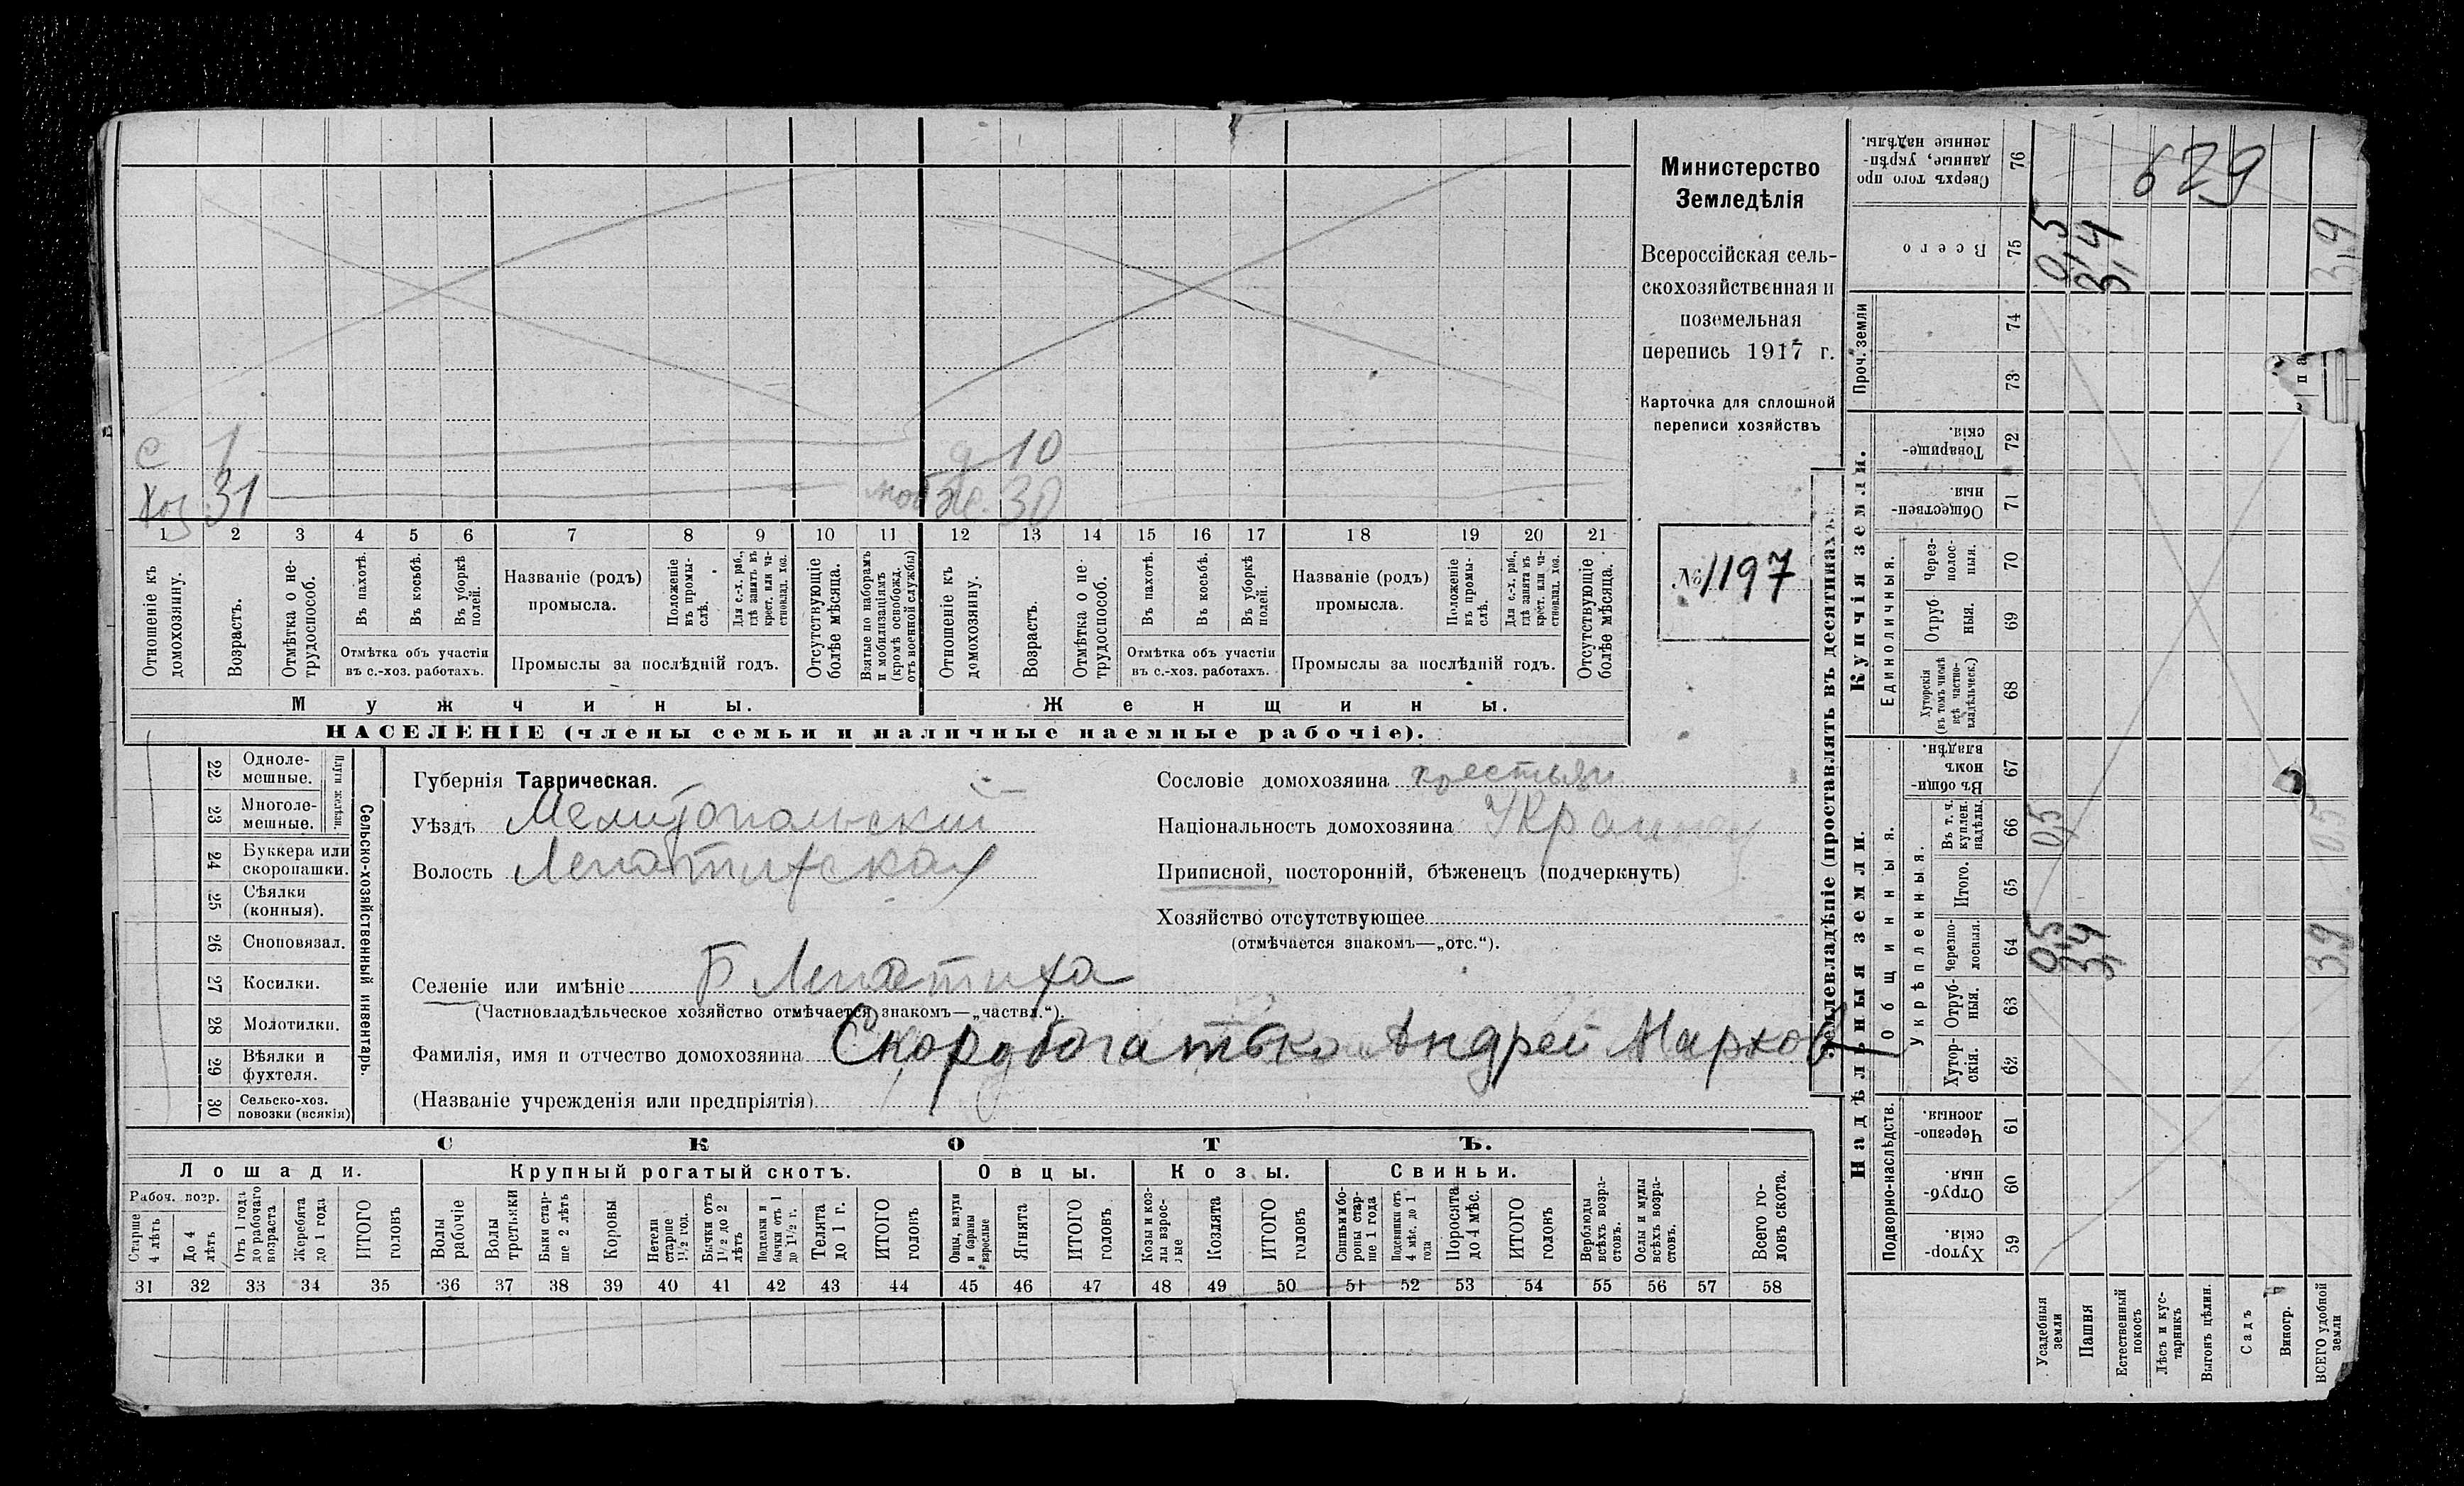 с 1 д 10
Хоз 31 моб же. 30
1 2 3 4 5 6 7 8 9 10 11 12 13 14 15 16 17 18 19 20 21
Отношеніе къ домохозяину.
Возрастъ.
Отмѣтка о не-трудоспособ.
Въ пахотѣ.
Въ косьбѣ.
Въ уборкѣ полей.
Отмѣтка объ участіи
въ с.-хоз. работахъ.
Названіе (родъ)
промысла.
Положеніе въ промы-слѣ.
Для с.-х. раб., гдѣ занятъ въ крест. или ча-стновлад. хоз.
Промыслы за послѣдній годъ.
Отсутствующіе болѣе мѣсяца.
Взятые по наборамъ и мобилизаціямъ (кромѣ освобожд. отъ военной службы)
Отношеніе къ домохозяину.
Возрастъ.
Отмѣтка о не-трудоспособ.
Въ пахотѣ.
Въ косьбѣ.
Въ уборкѣ полей.
Отмѣтка объ участіи
въ с.-хоз. работахъ.
Названіе (родъ)
промысла.
Положеніе въ промы-слѣ.
Для с.-х. раб., гдѣ занята въ крест. или ча-стновлад. хоз.
Промыслы за послѣдній годъ.
Отсутствующіе болѣе мѣсяца.
Мужчины.
Женщины.
НАСЕЛЕНІЕ (члены семьи и наличные наемные рабочіе).
Министерство
Земледѣлія
Всероссійская сель-
скохозяйственная и
поземельная
перепись 1917 г.
Карточка для сплошной
переписи хозяйствъ
№ 1197
22 Одноле-мешные.
23 Многоле-мешные.
Плуги желѣзн.
24 Буккера или скоропашки.
25 Сѣялки (конныя).
26 Сноповязал.
27 Косилки.
28 Молотилки.
29 Вѣялки и фухтеля.
30 Сельско-хоз. повозки (всякія)
Сельско-хозяйственный инвентарь.
Губернія Таврическая.
Уѣздъ Мелитопольскій
Волость Лепатихская
Селеніе или имѣніе Б Лепатиха
(Частновладѣльческое хозяйство отмѣчается знакомъ—„частвл.“).
Фамилія, имя и отчество домохозяина Скоробогатько Андрей Марков
(Названіе учрежденія или предпріятія)
Сословіе домохозяина крестьян
Національность домохозяина Украинец
Приписной, посторонній, бѣженецъ (подчеркнуть)
Хозяйство отсутствующее
(отмѣчается знакомъ—„отс.“).
СКОТЪ.
Лошади. Крупный рогатый скотъ. Овцы. Козы. Свиньи.
Рабоч. возр.
Старше 4 лѣтъ
До 4 лѣтъ
Отъ 1 года до рабочаго возраста
Жеребята до 1 года
ИТОГО головъ
Волы рабочіе
Волы третьяки
Быки стар-ше 2 лѣтъ
Коровы
Нетели старше 1½ год.
Бычки отъ 1½ до 2 лѣтъ
Подтелки и бычки отъ 1 до 1½ г.
Телята до 1 г.
ИТОГО головъ
Овцы, валухи и бараны взрослые
Ягнята
ИТОГО головъ
Козы и коз-лы взрос-лые
Козлята
ИТОГО головъ
Свиньи и бо-ровы стар-ше 1 года
Подсвинки отъ 4 мѣс. до 1 года
Поросята до 4 мѣс.
ИТОГО головъ
Верблюды всѣхъ возра-стовъ.
Ослы и мулы всѣхъ возра-стовъ.
Всего го-ловъ скота.
31 32 33 34 35 36 37 38 39 40 41 42 43 44 45 46 47 48 49 50 51 52 53 54 55 56 57 58
Землевладѣніе (проставлять въ десятинахъ
Купчія земли.
Надѣльныя земли.
Сверхъ того про-данные, укрѣп-ленные надѣлы. 76
629
Всего 75 0,5 3,4 3,9
Проч. земли 74
73
Товарище-скія. 72
Обществен-ныя. 71
Единоличныя.
Через-полос-ныя. 70
Отруб-ныя. 69
Хуторскія (въ томъ числѣ всѣ частно-владѣльческ.) 68
Общинныя.
Въ общи-номъ владѣн. 67
Укрѣпленныя.
Въ т. ч. куплен. надѣлы. 66 0,5 0,5
Итого. 65
Черезпо-лосныя. 64 0,5 3,4 3,9
Отруб-ныя. 63
Хутор-скія. 62
Подворно-наслѣдств.
Черезпо-лосныя. 61
Отруб-ныя. 60
Хутор-скія. 59
Усадебныя земли
Пашня
Естественный покосъ
Лѣсъ и кус-тарникъ
Выгонъ цѣлин.
Садъ
Виногр.
ВСЕГО удобной земли